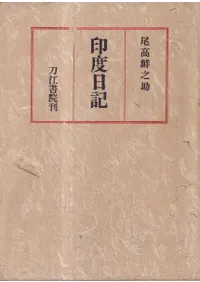 尾高鮮之助
印度日記
刀江書院刊